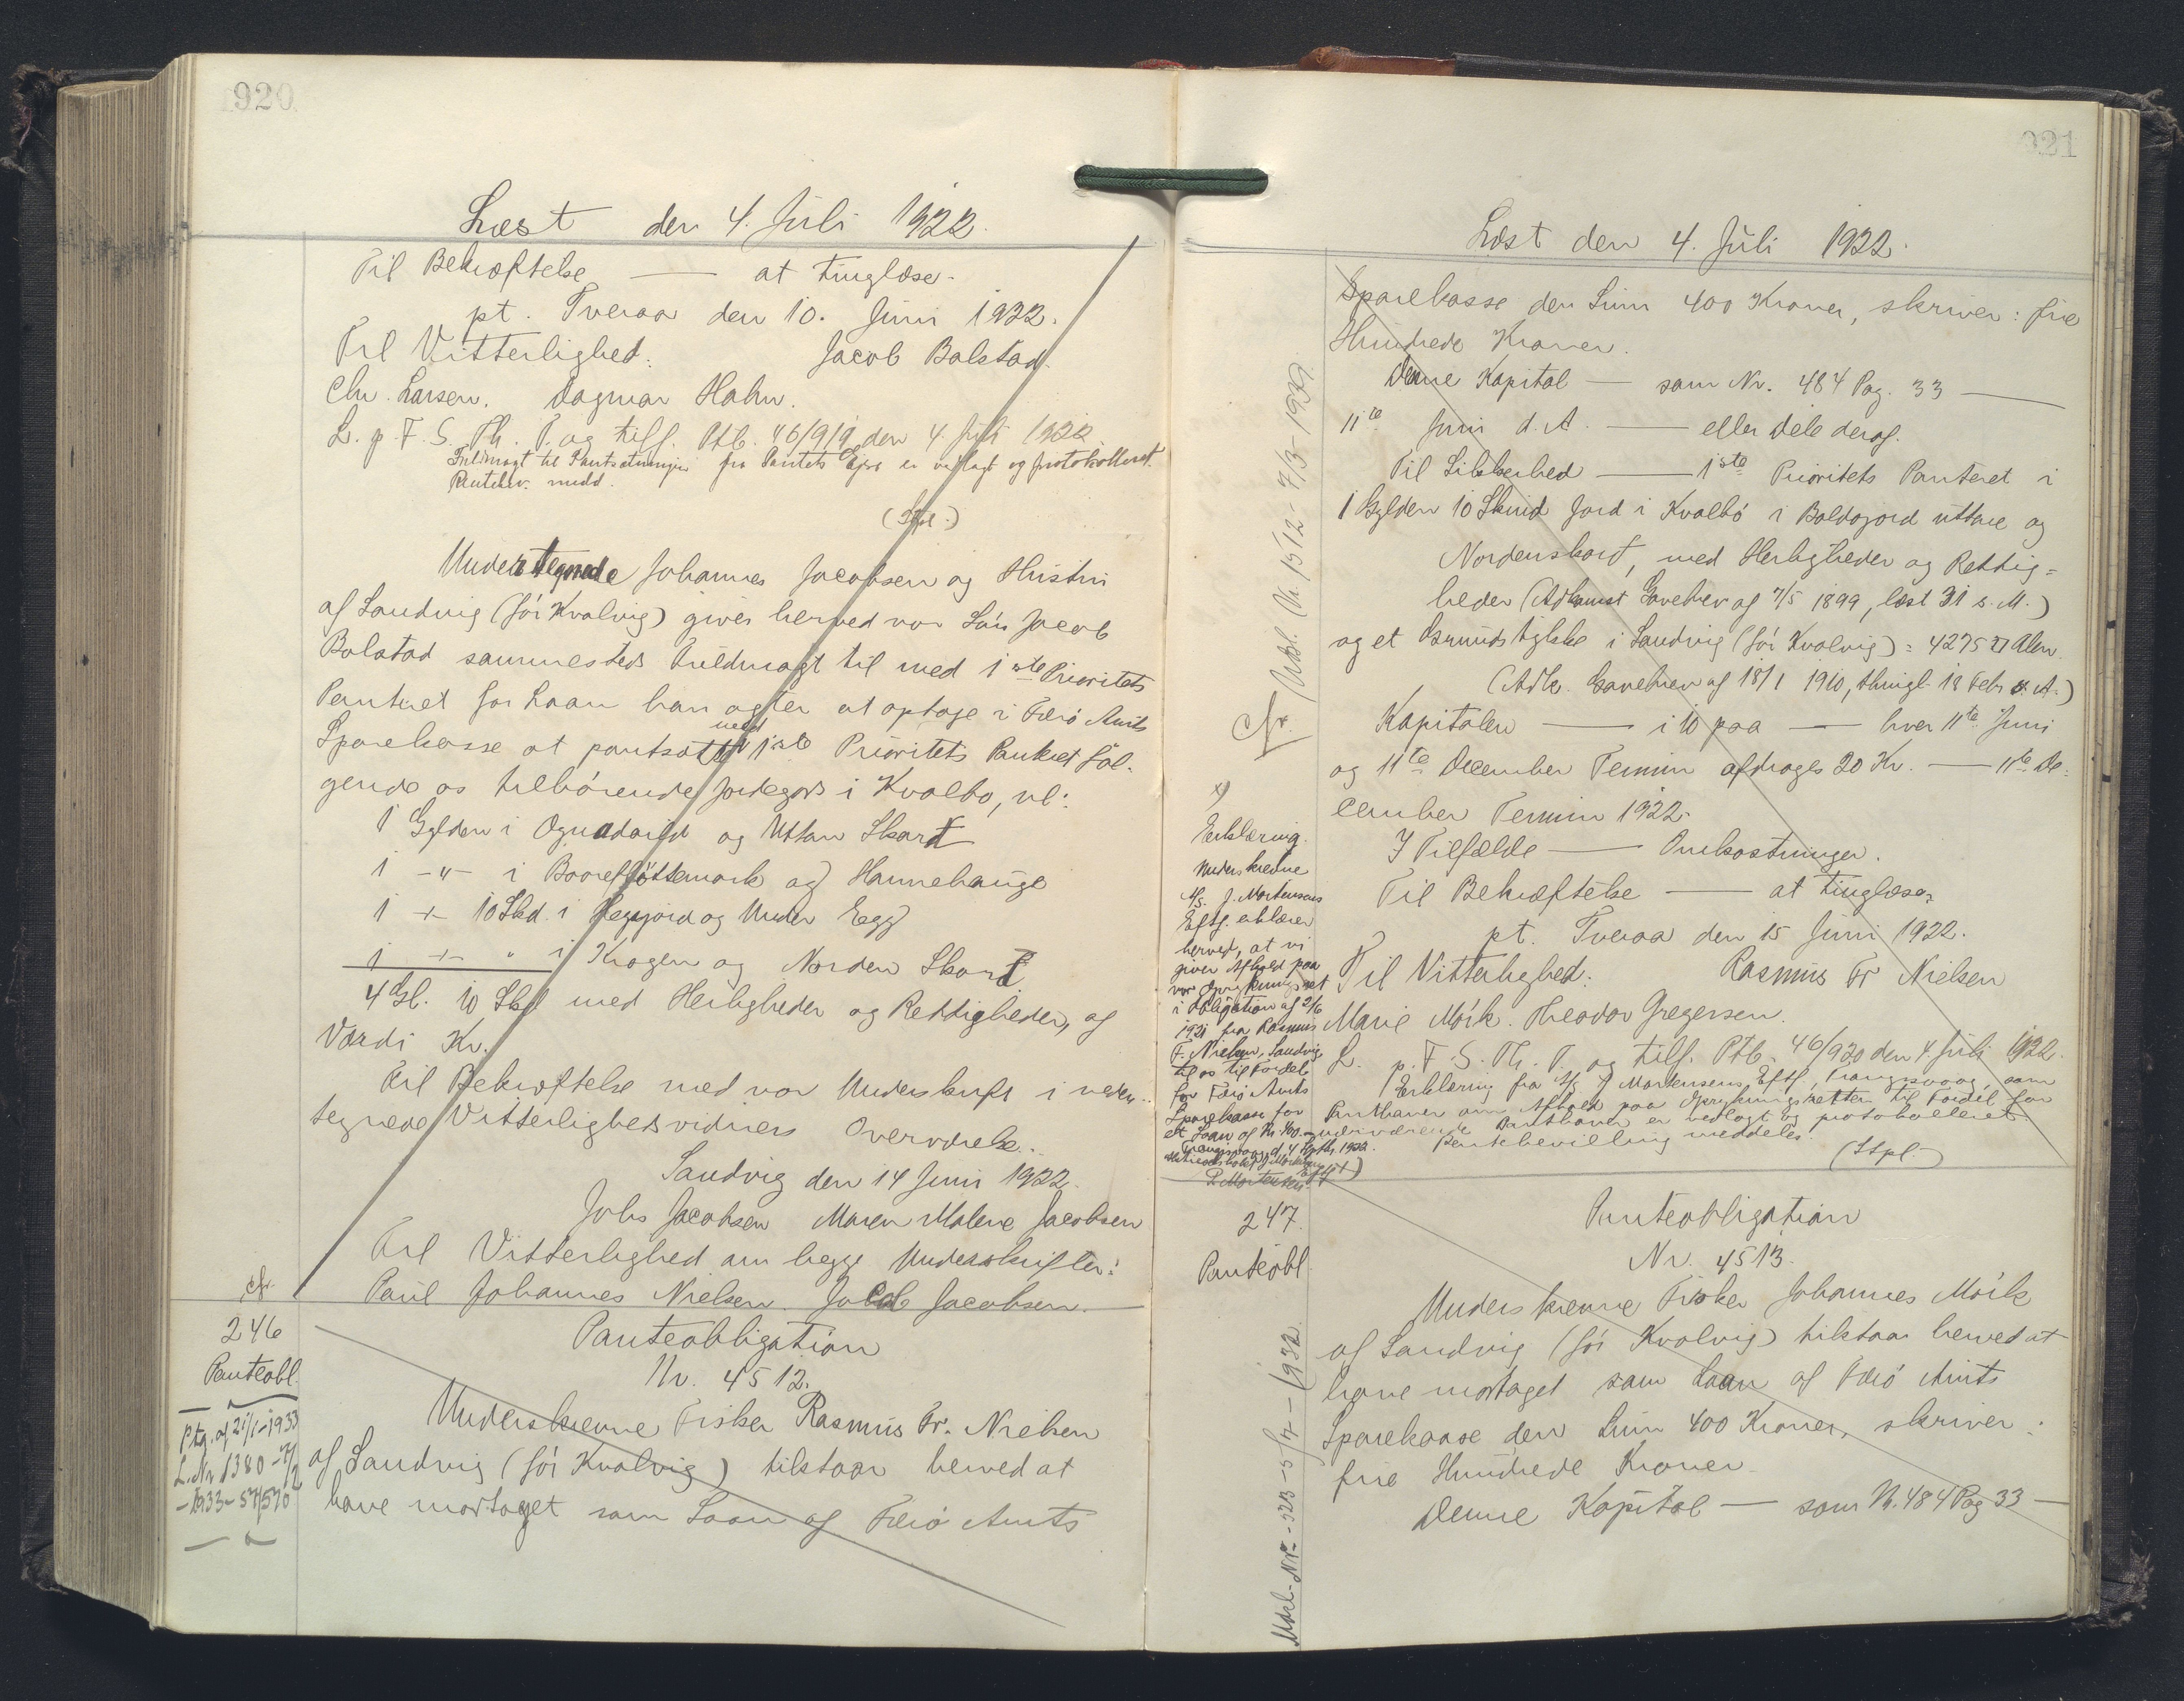 920
Læst den 4. Juli 1922.
Til Bekræftelse — at tinglæse.
pt. Tveraa den 10. Juni 1922.
Til Vitterlighed: Jacob Bolstad.
Chr. Larsen. Dagmar Hahn.
L. p. F. S. Th. T. og tilf. Ptb. 46/919 den 4. Juli 1922.
Fuldmagt til Pantsætningen fra Pantets Ejer er vedlagt og protokolleret.
Pantebev. medd.
(Stpl.)
Undertegnede Johannes Jacobsen og Hustru
af Sandvig (för Kvalvig) giver herved vor Sön Jacob
Bolstad sammesteds Fuldmagt til med 1ste Prioritets
Panteret for Laan han agter at optage i Færö Amts
Sparekasse at pantsætte med 1ste Prioritets Panteret föl-
gende os tilhörende Jordegods i Kvalbö, nl:
1 Gylden i Ognadarid og Uttan Skard
1 -"- i Booreflöttemark og Hannehauge
1 -"- 10 Skd. i Heggjord og Under Egg
1 -"- " i Krogen og Norden Skard
4 Gl. 10 Skd med Herligheder og Rettigheder, af
Værdi Kr.
Til Bekræftelse med vor Underskrift i neden-
tegnede Vitterlighedsvidners Overværelse.
Sandvig den 14 Juni 1922.
Johs Jacobsen Maren Malene Jacobsen
Til Vitterlighed om begge Underskrifter:
Paul Johannes Nielsen. Jacob Jacobsen.
cfr.
246
Panteobl.
Ptg. af 21/1-1933
L. Nr 1380-7/2
-1933-57/570
Panteobligation
Nr. 4512.
Underskrevne Fisker Rasmus Fr. Nielsen
af Sandvig (för Kvalvig) tilstaar herved at
have modtaget som Laan af Færö Amts
921
Læst den 4. Juli 1922.
Sparekasse den Sum 400 Kroner, skriver: fire
Hundrede Kroner.
Denne Kapital — som Nr. 484 Pag. 33 —
11te Juni d. A. — eller Dele deraf.
Til Sikkerhed — 1ste Prioritets Panteret i
1 Gylden 10 Skind Jord i Kvalbö i Boldogjord uttare og
Nordenskard, med Herligheder og Rettig=
heder (Adkomst Gavebrev af 7/5 1899, læst 31 s. M.)
og et Grundstykke i Sandvig (för Kvalvig) = 4275 □ Alen
(Adk. Gavebrev af 18/1 1910, thingl. 18 Febr s. A.)
Kapitalen — i 10 paa — hver 11te Juni
og 11te December Termin afdrages 20 Kr. — 11te De=
cember Termin 1922.
I Tilfælde — Omkostninger.
Til Bekræftelse — at tinglæse.
pt. Tveraa den 15 Juni 1922.
Til Vitterlighed: Rasmus Fr Nielsen
Marie Mörk. Theodor Gregersen.
L. p. F. S. Th. T. og tilf. Ptb. 46/920 den 4. Juli 1922.
Erklæring fra A/S J Mortensens Eftf, Trangisvaag, som
Panthaver om Afkald paa Oprykningsretten til Fordel for
nærværende Panthaver er vedlagt og protokolleret.
Pantebevilling meddeles.
(Stpl.)
Udsl. Nr. 1512-7/3-1939.
cfr.
x)
Erklæring.
Underskrevne
A/S. J. Mortensens
Eftf. erklærer
herved, at vi
giver Afkald paa
vor Oprykningsret
i Obligation af 2/6
1921 fra Rasmus
F. Nielsen, Sandvig
til os til Fordel
for Færö Amts
Sparekasse for
et Laan af Kr. 400.
Trangisvaag d. 4 1922.
Aktieselskabet J Mortensens Eftf
P. Mortensen
247.
Panteobl.
Udsl-Nr-323-5/4-1932.
Panteobligation
Nr. 4513.
Underskrevne Fisker Johannes Mörk
af Sandvig (för Kvalvig) tilstaar herved at
have modtaget som Laan af Færö Amts
Sparekasse den Sum 400 Kroner, skriver:
fire Hundrede Kroner.
Denne Kapital — som N. 484 Pag 33 —